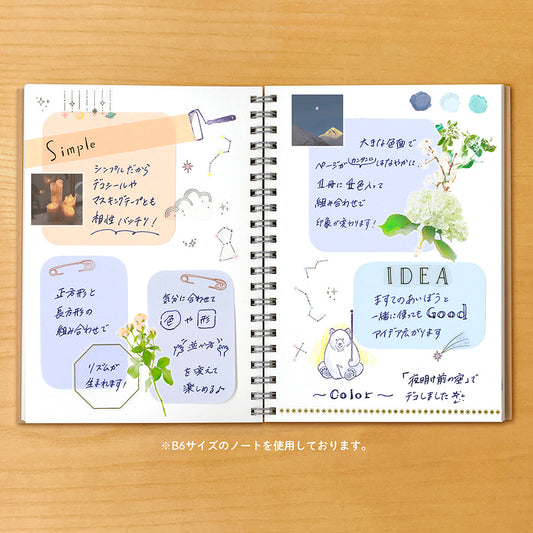 Simple
シンプルだから
デコシールや
マスキングテープとも
相性バッチリ!
正方形と
長方形の
組み合わせで
リズムが
生まれます!
気分に合わせて
色や形
並べ方
を変えて
楽しめる♪
大きな色面で
ページがカンタンにはなやかに、
1冊に全色入って
組み合わせで
印象が変わります!
IDEA
ますてのあいぼうと
一緒に使ってもGood
アイデア広がります
~Color~
「夜明け前の空」で
デコしました
※B6サイズのノートを使用しております。